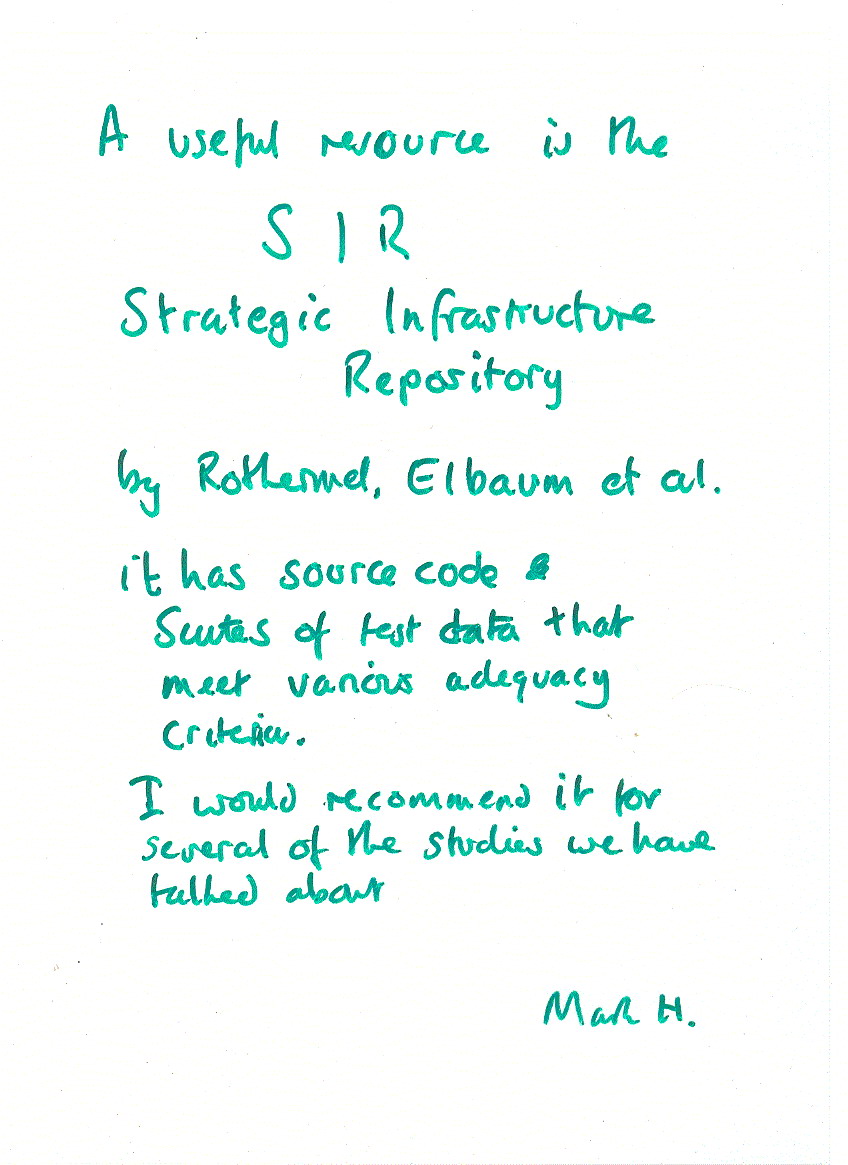 A useful resource is the
SIR
Strategic Infrastructure
Repository
by Rothermel, Elbaum et al.
it has source code &
Suites of test data that
meet various adequacy
criteria.
I would recommend it for
several of the studies we have
talked about
Mark H.